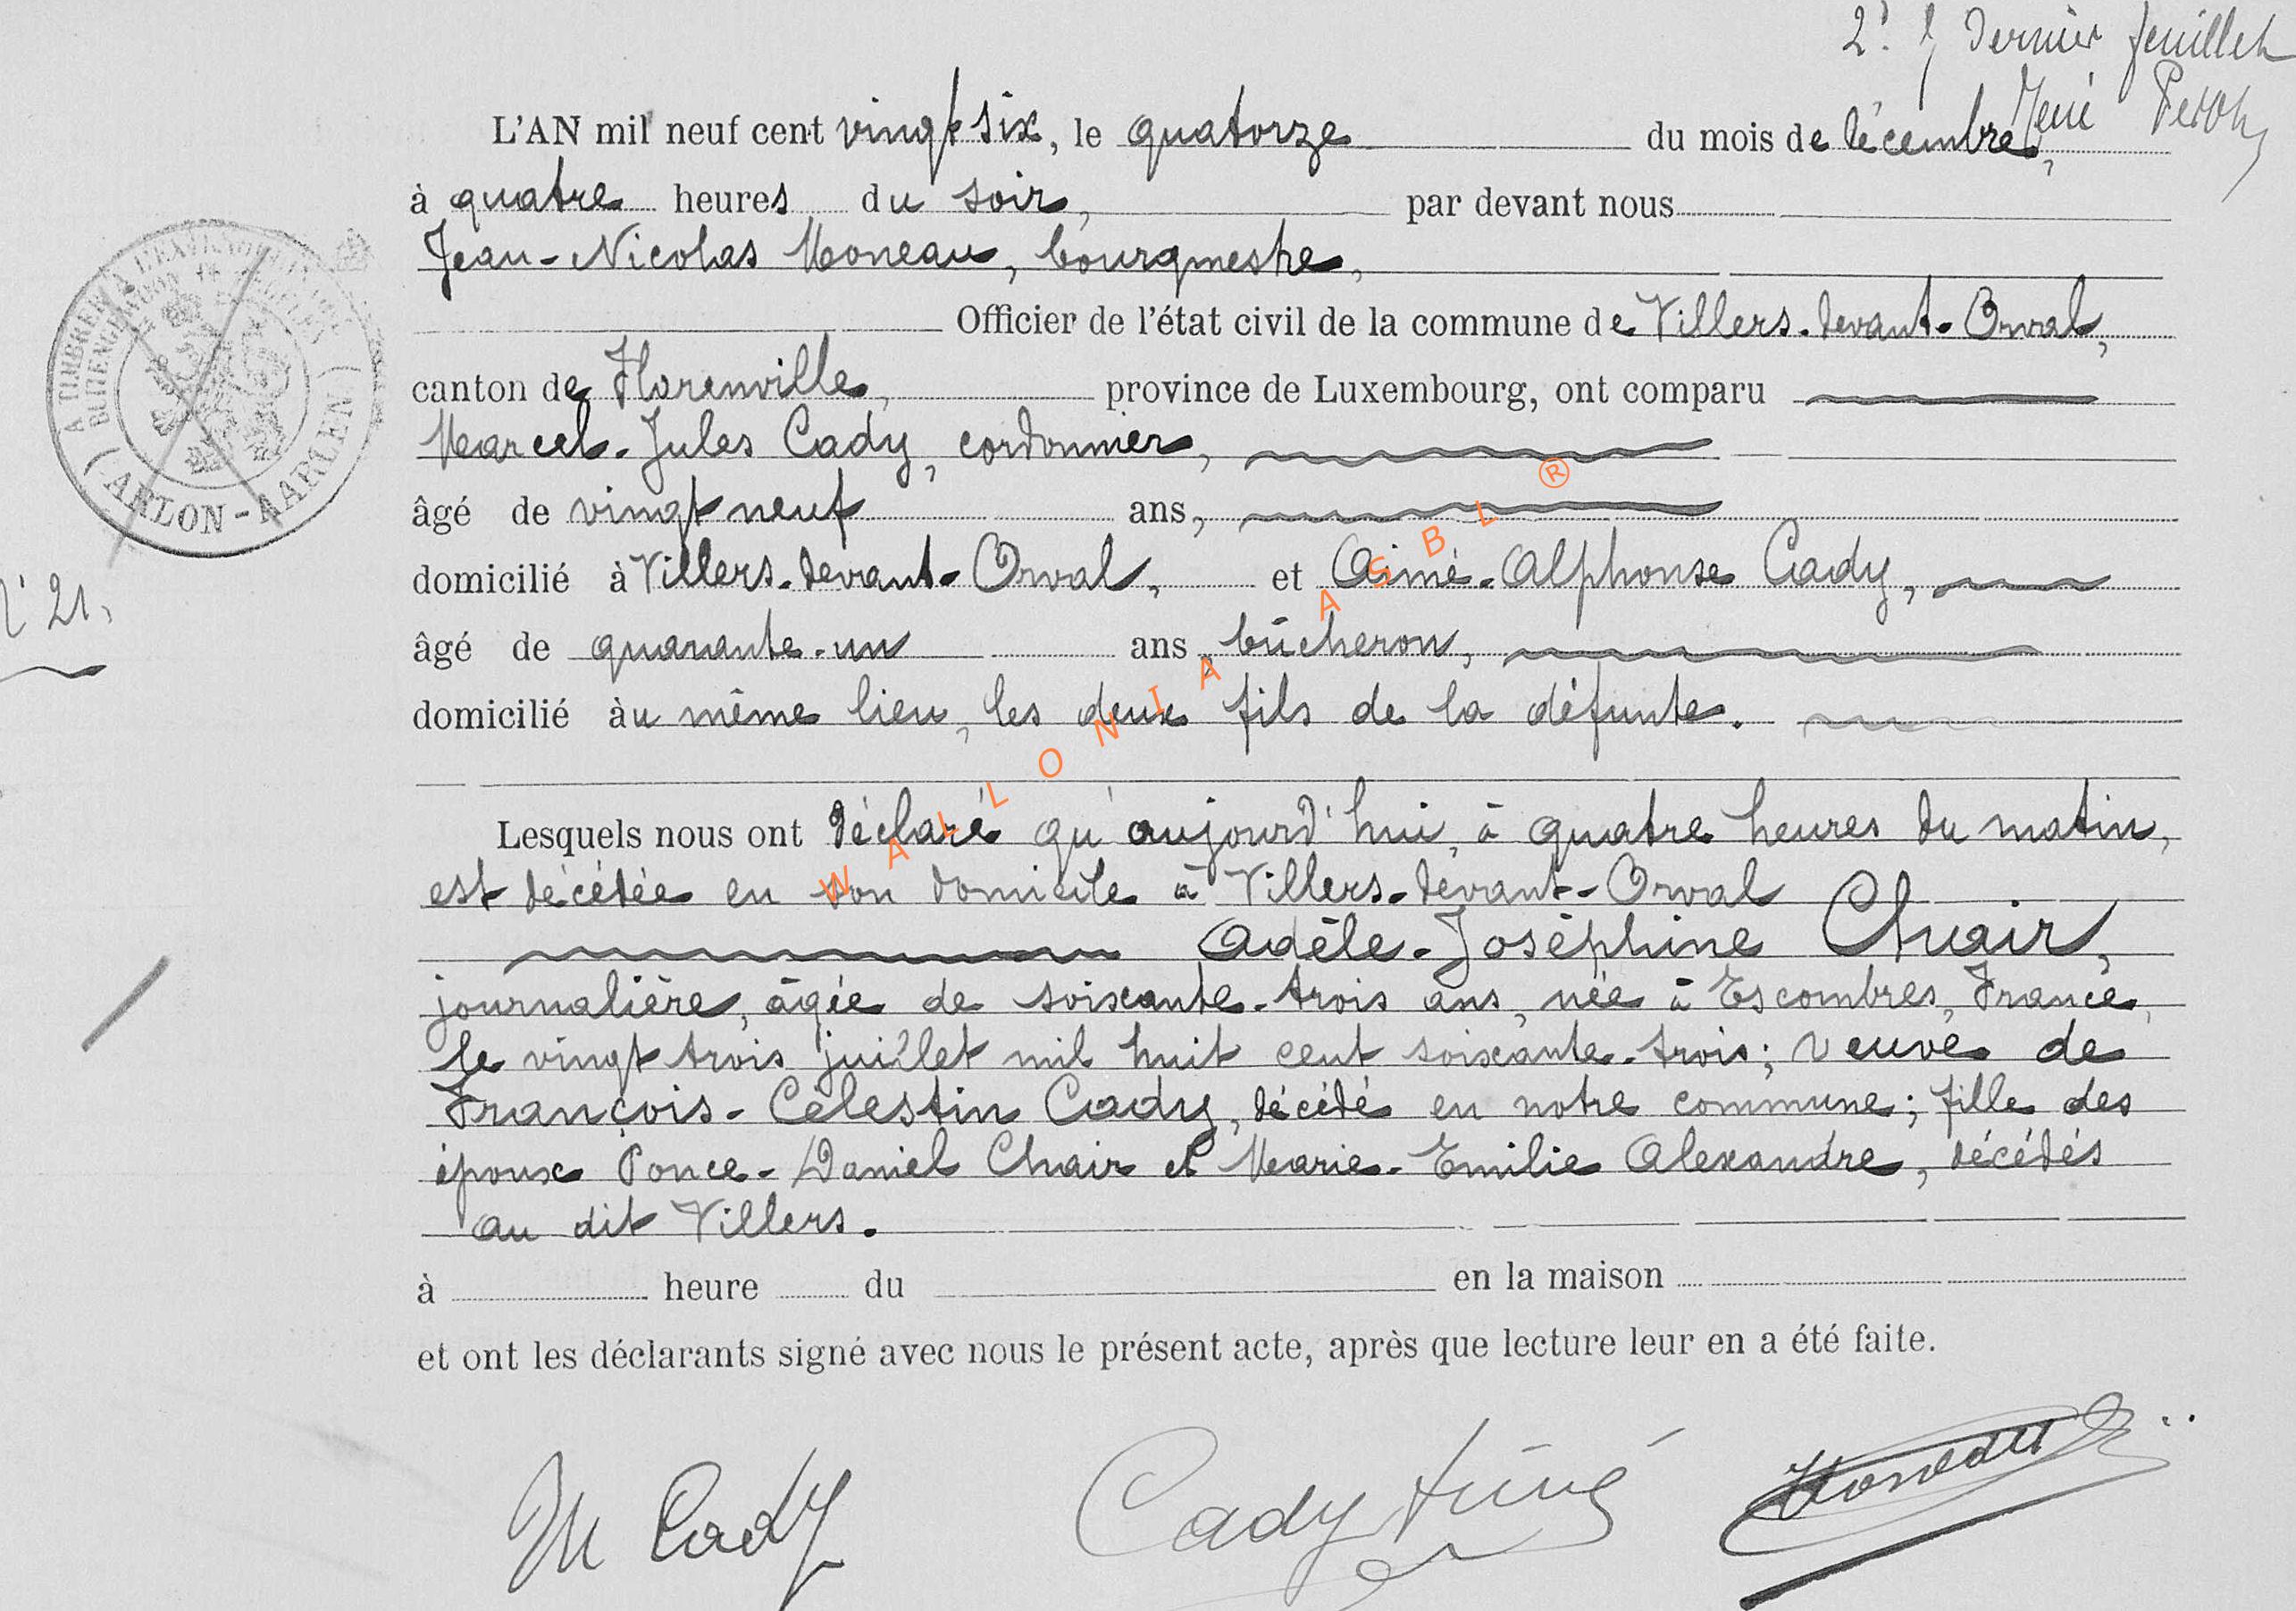 2e & dernier feuillet
L'AN mil neuf cent vingt six, le quatorze du mois de décembre,
à quatre heures du soir, par devant nous
Jean-Nicolas Moneau, bourgmestre,
Officier de l'état civil de la commune de Villers-devant-Orval,
canton de Florenville, province de Luxembourg, ont comparu
Marcel-Jules Cady, cordonnier,
âgé de vingt neuf ans,
domicilié à Villers-devant-Orval, et Aimé-Alphonse Cady,
âgé de quarante-un ans, bûcheron,
domicilié au même lieu, les deux fils de la défunte.
Lesquels nous ont déclaré qu'aujourd'hui, à quatre heures du matin,
est décédée en son domicile à Villers-devant-Orval
Adèle-Joséphine Chair,
journalière, âgée de soixante-trois ans, née à Escombres, France,
le vingt trois juillet mil huit cent soixante-trois; veuve de
François-Célestin Cady, décédé en notre commune; fille des
époux Ponce-Daniel Chair et Marie-Emilie Alexandre, décédés
au dit Villers.
à heure du en la maison
et ont les déclarants signé avec nous le présent acte, après que lecture leur en a été faite.
M Cady Cady Aimé Moneau
N° 21.
(ARLON-AARLEN)
WALLONIA ASBL ®